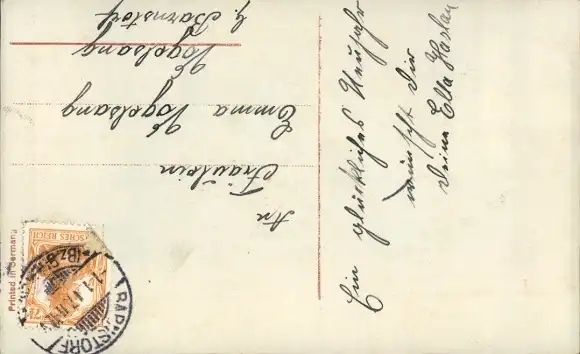 Ein glückliches Neujahr
wünscht Dir
Deine Ella Harlau
An
Fräulein
Emma Vogelsang
Vogelsang
b. Barnstorf
Printed in Germany
SCHES REICH
BARNSTORF